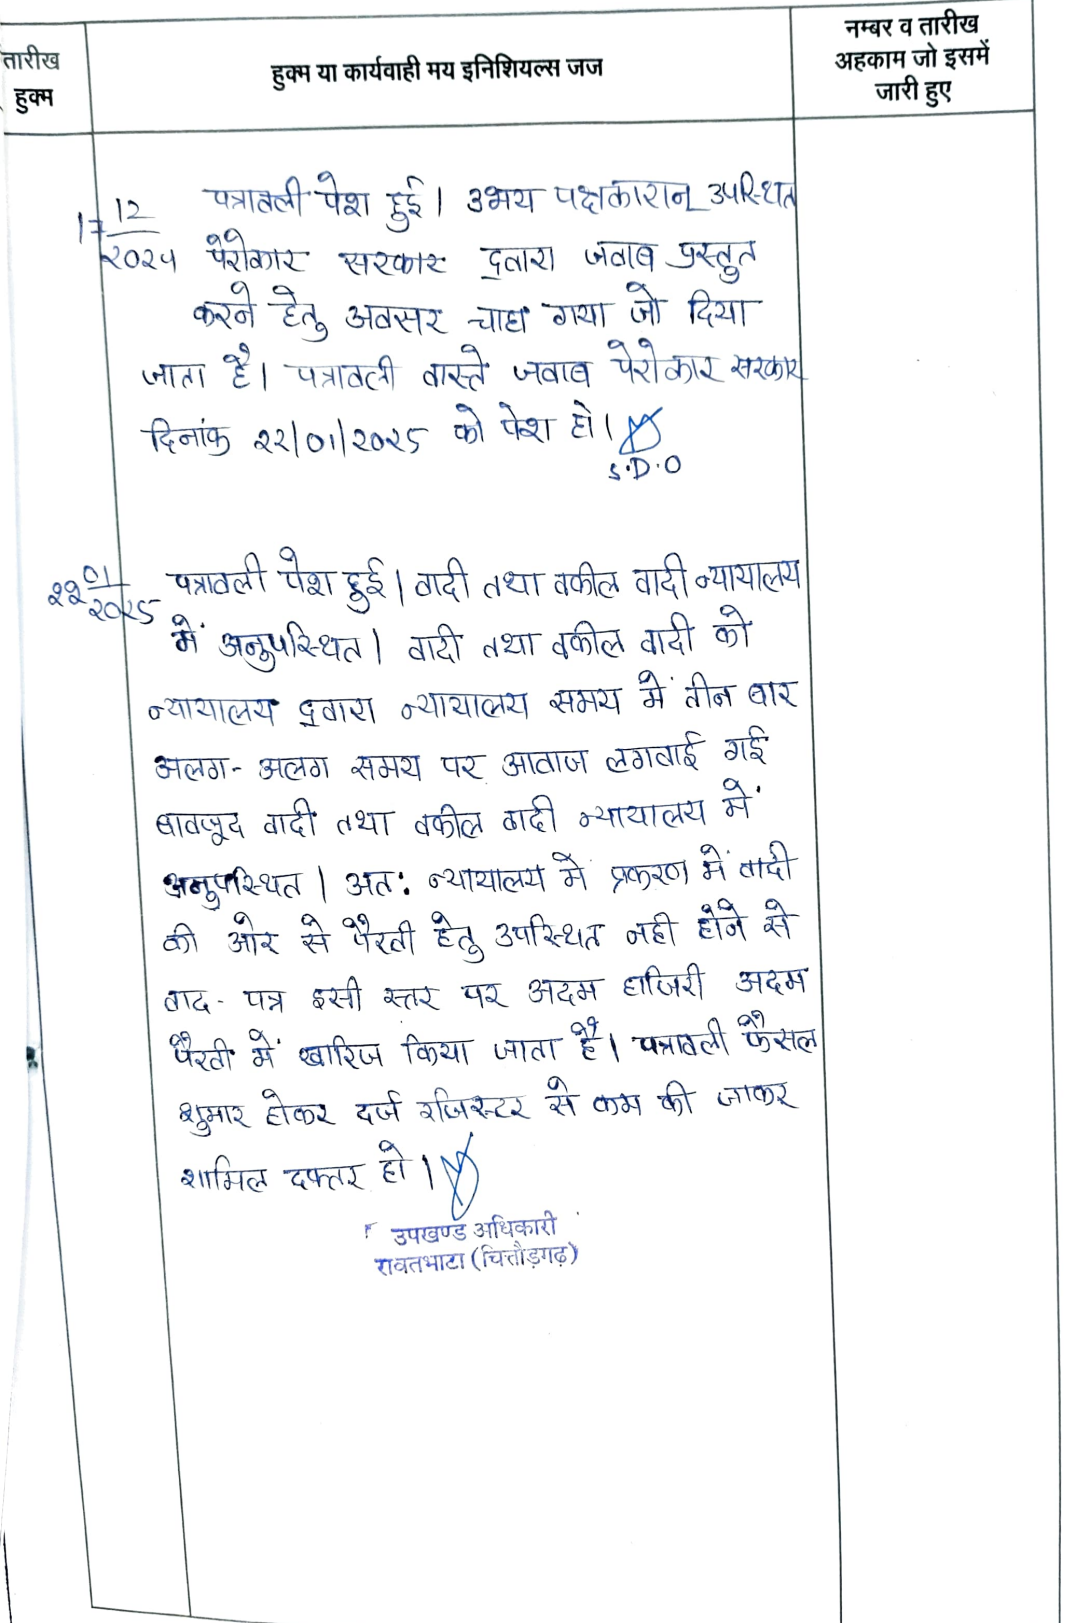 तारीख
हुक्म
हुक्म या कार्यवाही मय इनिशियल्स जज
नम्बर व तारीख
अहकाम जो इसमें
जारी हुए
17 12/2024
पत्रावली पेश हुई। उभय पक्षकारान् उपस्थित
पेरोकार सरकार द्वारा जवाब प्रस्तुत
करने हेतु अवसर चाहा गया जो दिया
जाता है। पत्रावली वास्ते जवाब पेरोकार सरकार
दिनांक 22/01/2025 को पेश हो।
S.D.O
22 01/2025
पत्रावली पेश हुई। वादी तथा वकील वादी न्यायालय
में अनुपस्थित। वादी तथा वकील वादी को
न्यायालय द्वारा न्यायालय समय में तीन बार
अलग-अलग समय पर आवाज लगवाई गई
बावजूद वादी तथा वकील वादी न्यायालय में
अनुपस्थित। अतः न्यायालय में प्रकरण में वादी
की ओर से पैरवी हेतु उपस्थित नही होने से
वाद-पत्र इसी स्तर पर अदम हाजिरी अदम
पैरवी में खारिज किया जाता है। पत्रावली फैसल
शुमार होकर दर्ज रजिस्टर से कम की जाकर
शामिल दफ्तर हो।
उपखण्ड अधिकारी
रावतभाटा (चित्तौड़गढ़)